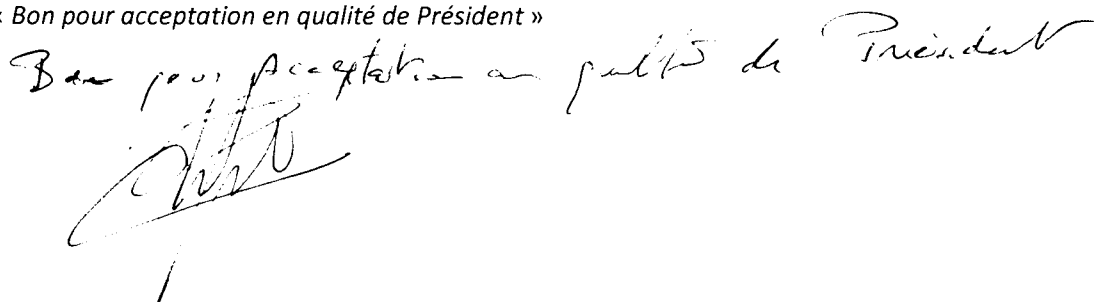 « Bon pour acceptation en qualité de Président »
Bon pour Acceptation en qualité de Président